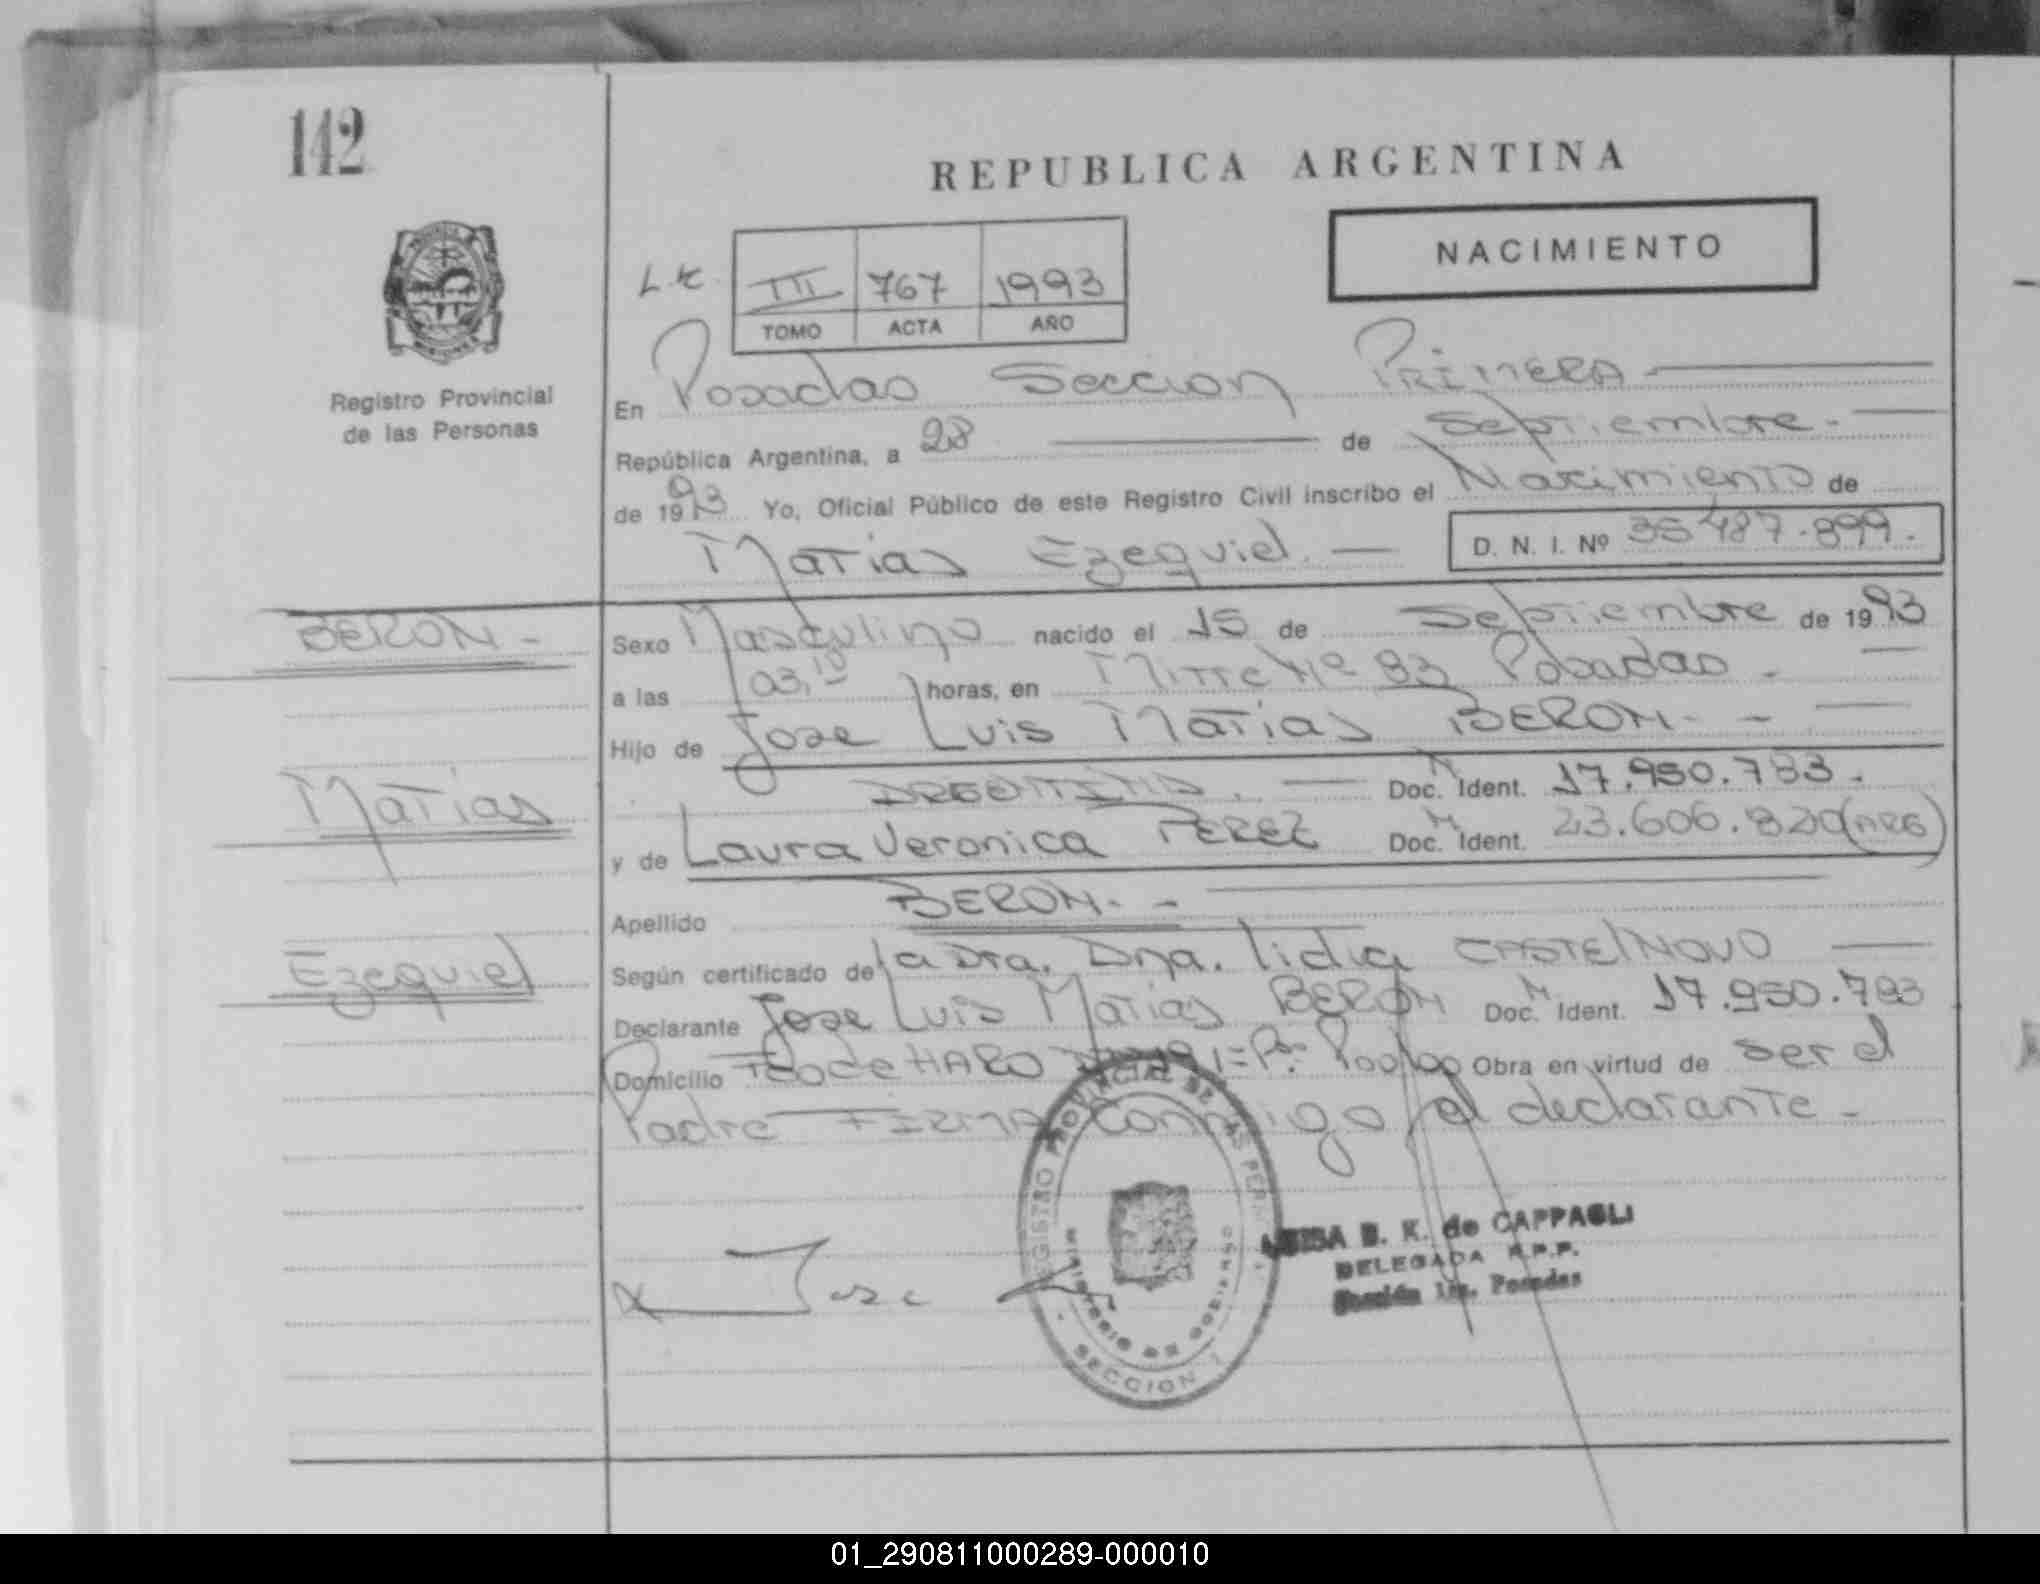 142
REPUBLICA ARGENTINA
NACIMIENTO
III 767 1993
TOMO ACTA AÑO
Registro Provincial
de las Personas
En Posadas Seccion PRIMERA
República Argentina, a 28 de Septiembre.
de 1993 Yo, Oficial Público de este Registro Civil inscribo el Nacimiento de
Matias Ezequiel. D. N. I. Nº 35487.899.
BERON
Sexo Masculino nacido el 15 de Septiembre de 1993
a las 03,10 horas, en Mitre Nº 83 Posadas.
Hijo de Jose Luis Matias BERON.
Matias
ARGENTINA. Doc. Ident. 17.950.783.
y de Laura Veronica PEREZ Doc. Ident. 23.606.820 (ARG)
Apellido BERON.
Ezequiel
Según certificado de la Dra. Dña. Lidia CASTELNOVO
Declarante Jose Luis Matias BERON Doc. Ident. 17.950.783
Domicilio HARO Obra en virtud de ser el
Padre FIRMA Conmigo el declarante
REGISTRO PROVINCIAL DE LAS PER
MINISTERIO DE GOBIERNO
SECCION
Jose
B. K. de CAPPAGLI
DELEGADA R.P.P.
Sección 1ra. Posadas
01_290811000289-000010